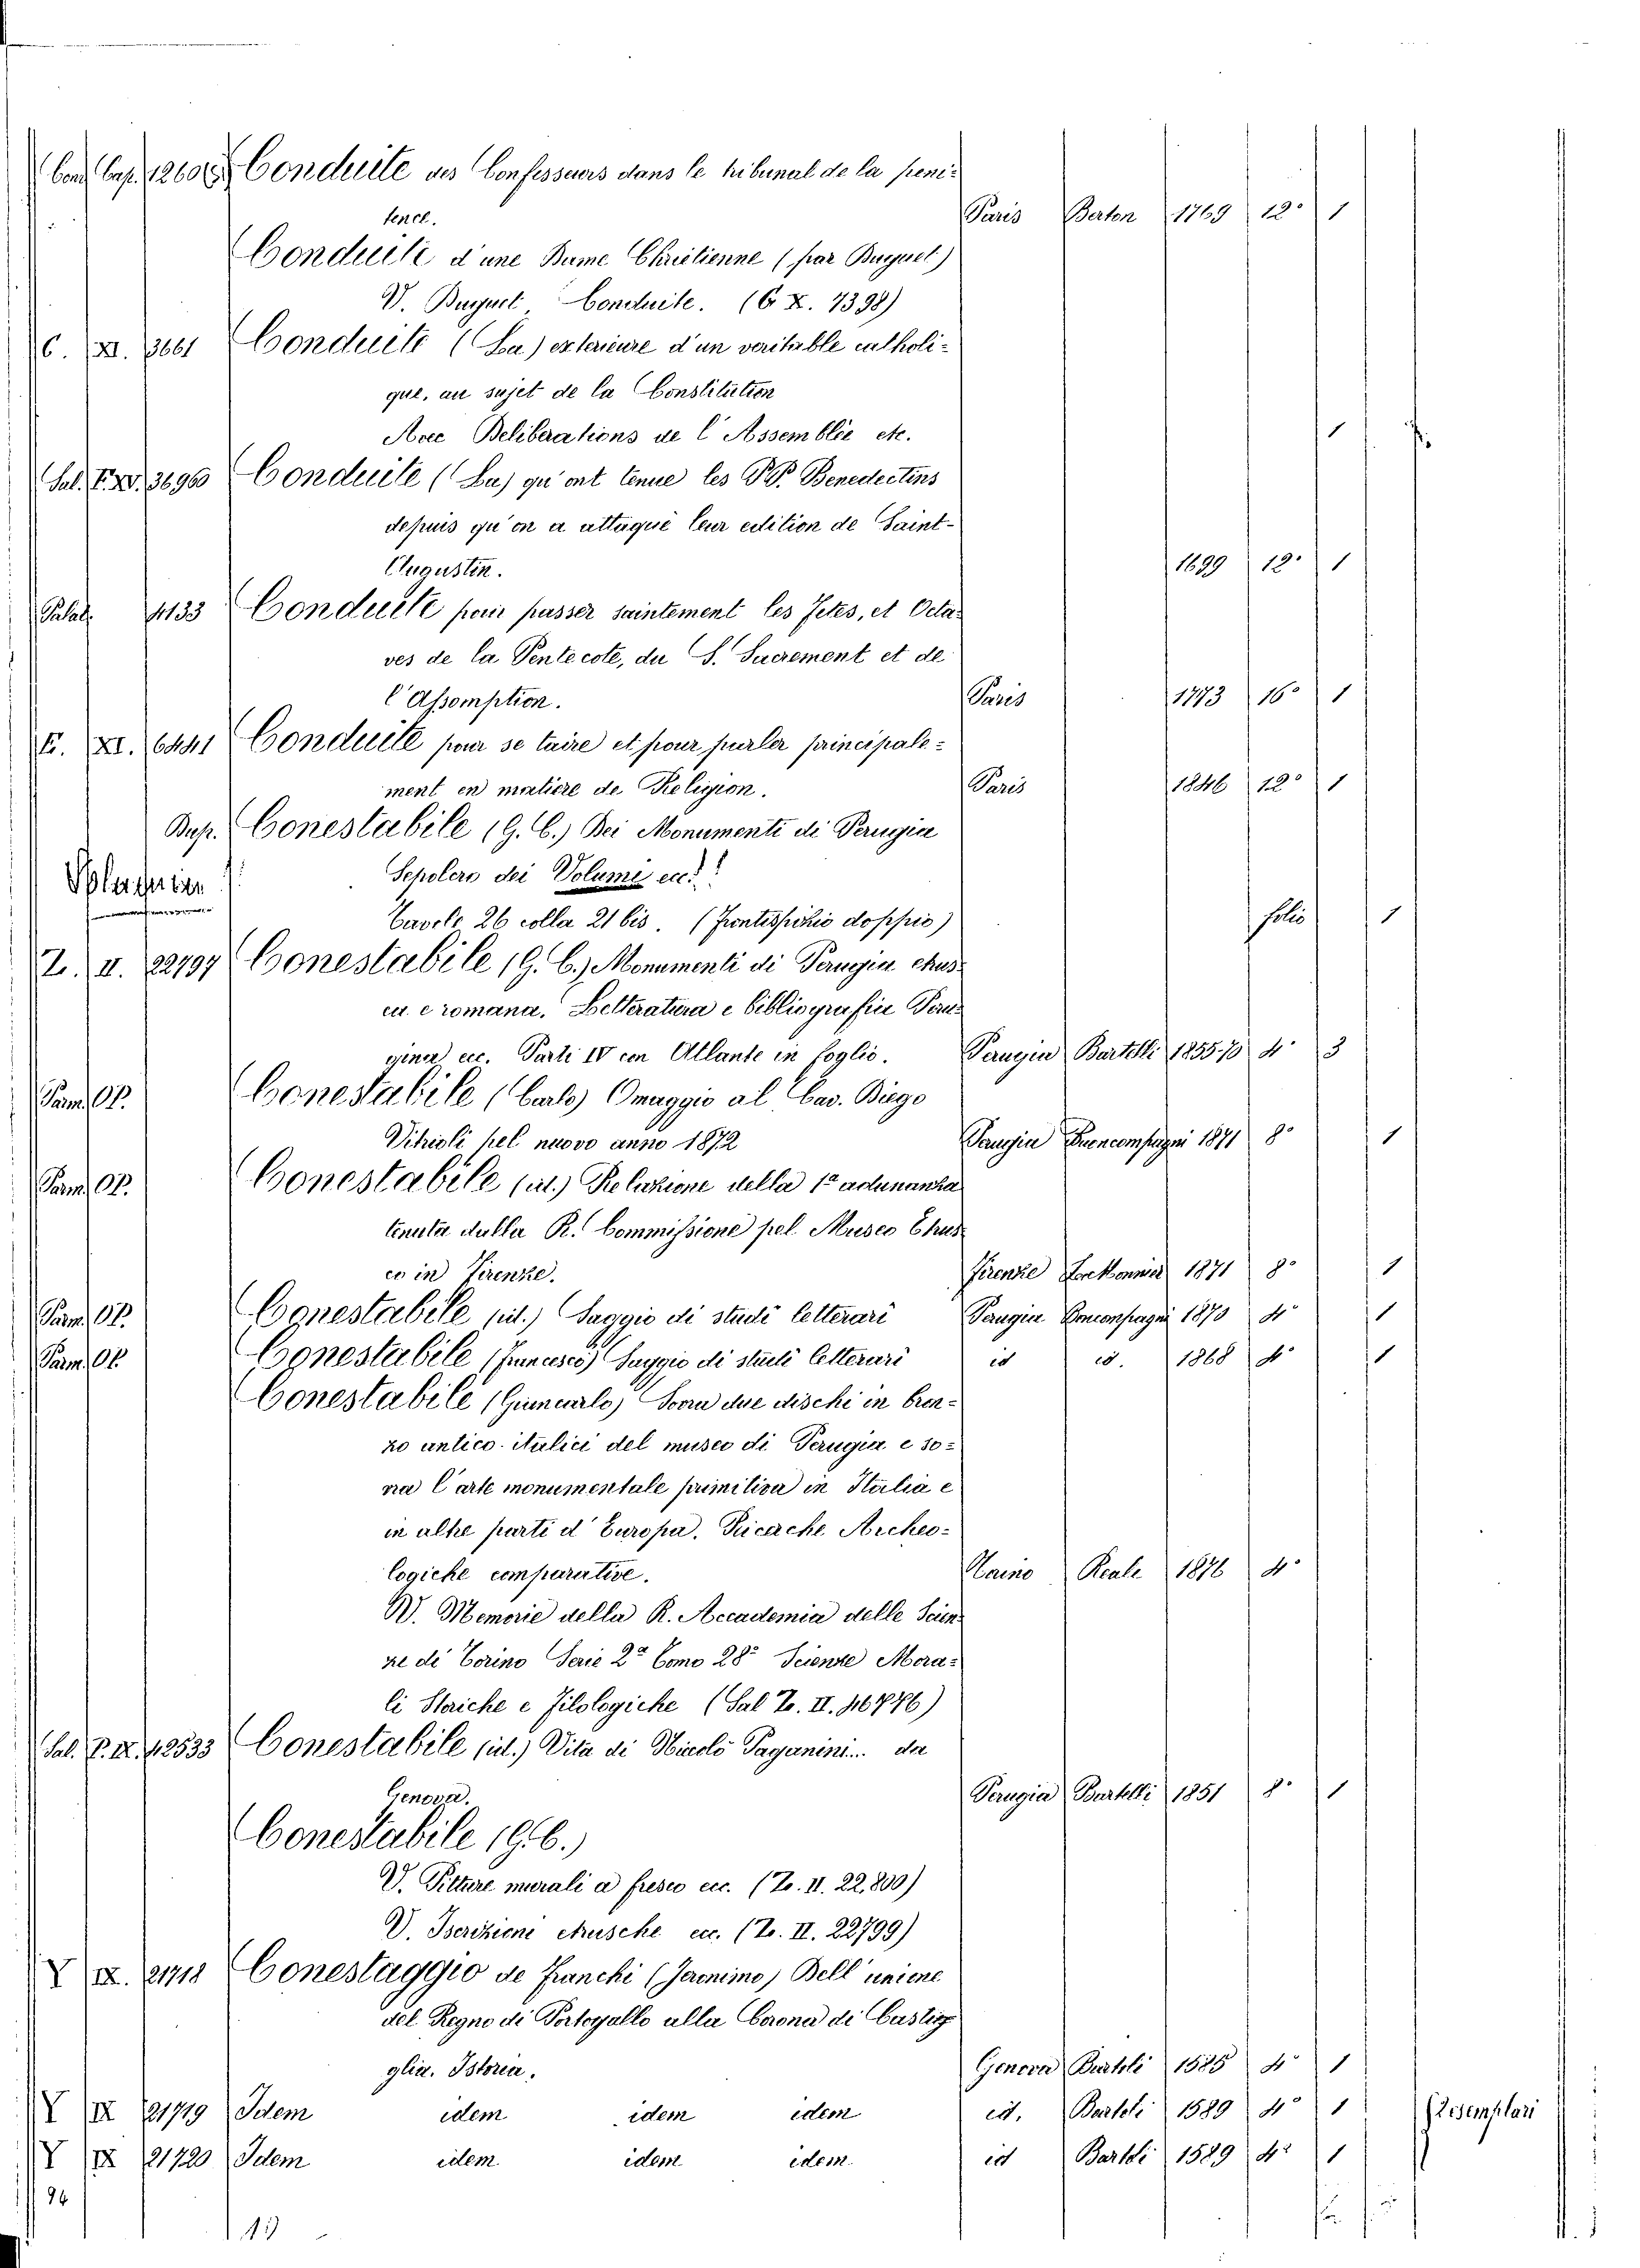 Con. Cap. 1260 Conduite des Confesseurs dans le tribunal de la peni-
tence. Paris Berton 1769 12° 1
Conduite d'une Dame Chrétienne (par Duguet)
V. Duguet, Conduite. (C X. 1398)
C. XI. 3661 Conduite (La) exterieure d'un veritable catholi-
que, au sujet de la Constitution
Avec Deliberations de l'Assemblée etc. 1
Sal. F. XV. 36960 Conduite (La) qu'ont tenue les PP. Benedectins
depuis qu'on a attaqué leur edition de Saint-
Augustin. 1699 12° 1
Palat. 4133 Conduite pour passer saintement les fetes, et Octa-
ves de la Pentecote, du S. Sacrement et de
l'Assomption. Paris 1773 16° 1
E. XI. 6441 Conduite pour se taire et pour parler principale-
ment en matière de Religion. Paris 1846 12° 1
Dup. Conestabile (G. C.) Dei Monumenti di Perugia
Sepolcro dei Volumi ecc.
Tavole 26 colla 21 bis. (Frontispizio doppio) folio 1
Z. II. 22797 Conestabile (G. C.) Monumenti di Perugia etrus-
ca e romana. Letteratura e bibliografia Peru-
gina ecc. Parti IV con Atlante in foglio. Perugia Bartelli 1855-70 4° 3
Pam. 07. Conestabile (Carlo) Omaggio al Cav. Diego
Vitrioli pel nuovo anno 1872 Perugia Buoncompagni 1871 8° 1
Pam. 07. Conestabile (id.) Relazione della 1ª adunanza
tenuta dalla R. Commissione pel Museo Etrus-
co in Firenze. Firenze Le Monnier 1871 8° 1
Pam. 07. Conestabile (id.) Saggio di studi letterari Perugia Boncompagni 1870 4° 1
Pam. 07. Conestabile (Francesco) Saggio di studi letterari id id. 1868 4° 1
Conestabile (Giancarlo) Sovra due dischi in bron-
zo antico-italici del museo di Perugia e so-
vra l'arte monumentale primitiva in Italia e
in altre parti d'Europa. Ricerche Archeo-
logiche comparative. Torino Reale 1876 4°
V. Memorie della R. Accademia delle Scien-
ze di Torino Serie 2ª Tomo 28° Scienze Mora-
li Storiche e Filologiche (Sal Z. II. 46776)
Sal. P. IX. 42533 Conestabile (id.) Vita di Niccolò Paganini... da
Genova. Perugia Bartelli 1851 8° 1
Conestabile (G. C.)
V. Pitture murali a fresco ecc. (Z. II. 22,800)
V. Iscrizioni etrusche ecc. (Z. II. 22799)
Y IX. 21718 Conestaggio de Franchi (Jeronimo) Dell'unione
del Regno di Portogallo alla Corona di Castig
glia. Istoria. Genova Bartoli 1585 4° 1
Y IX 21719 Idem idem idem idem id. Bartoli 1589 4° 1 2 esemplari
Y IX 21720 Idem idem idem idem id Bartoli 1589 4° 1